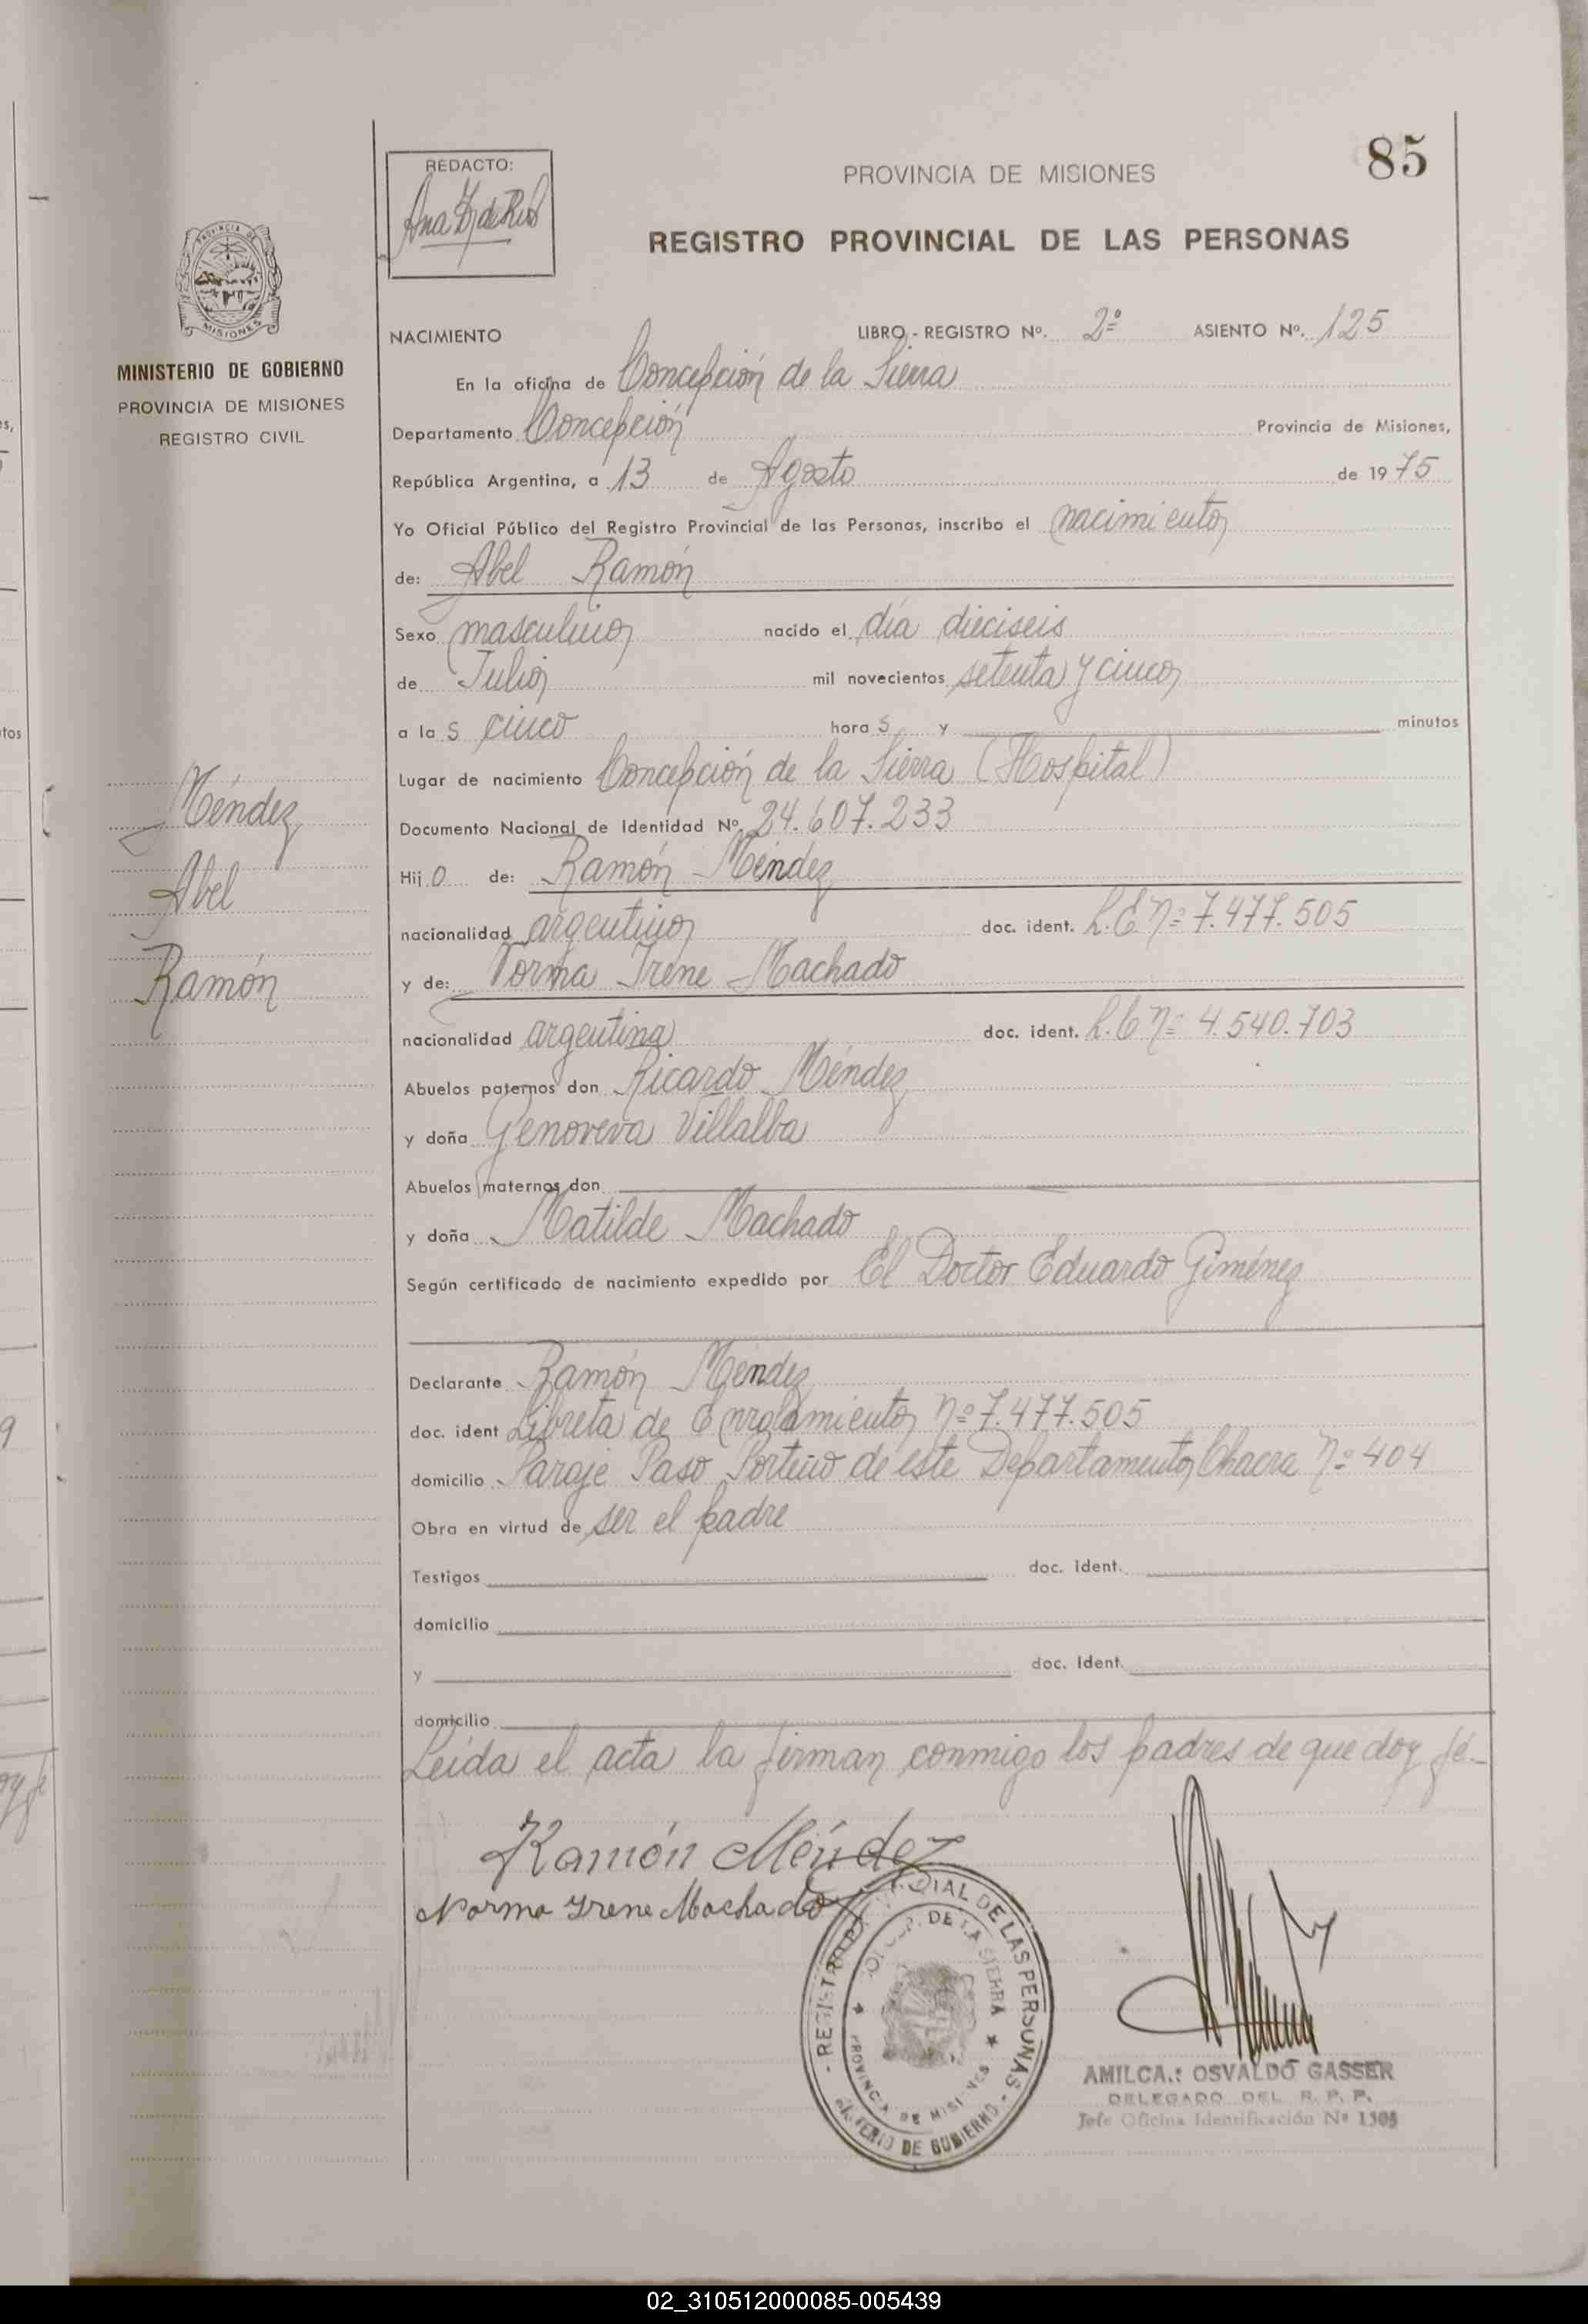 85
REDACTO:
PROVINCIA DE MISIONES
REGISTRO PROVINCIAL DE LAS PERSONAS
PROVINCIA DE
MISIONES
MINISTERIO DE GOBIERNO
PROVINCIA DE MISIONES
REGISTRO CIVIL
NACIMIENTO LIBRO - REGISTRO Nº. 2º ASIENTO Nº. 125
En la oficina de Concepción de la Sierra
Departamento Concepción Provincia de Misiones,
República Argentina, a 13 de Agosto de 1975
Yo Oficial Público del Registro Provincial de las Personas, inscribo el nacimiento
de: Abel Ramón
Sexo masculino nacido el día dieciseis
de Julio mil novecientos setenta y cinco
a la s cinco hora s y minutos
Lugar de nacimiento Concepción de la Sierra (Hospital)
Documento Nacional de Identidad Nº. 24.607.233
Hij o de: Ramón Méndez
nacionalidad argentino doc. ident. L.E nº 7.477.505
y de: Norma Irene Machado
nacionalidad argentina doc. ident. L.C nº 4.540.703
Abuelos paternos don Ricardo Méndez
y doña Genoveva Villalba
Abuelos maternos don
y doña Matilde Machado
Según certificado de nacimiento expedido por El Doctor Eduardo Giménez
Declarante Ramón Méndez
doc. ident Libreta de Enrolamiento nº 7.477.505
domicilio Paraje Paso Porteño de este Departamento Chacra nº 404
Obra en virtud de ser el padre
Testigos doc. ident.
domicilio
y doc. ident.
domicilio
Leída el acta la firman conmigo los padres de que doy fé.-
Méndez
Abel
Ramón
Ramón Méndez
Norma Irene Machado
DE LAS PERSONAS
DE LA SIERRA
PROVINCIA DE MISIONES
DE GOBIERNO
AMILCA.: OSVALDO GASSER
DELEGADO DEL R. P. P.
Jefe Oficina Identificación Nº 1305
02_310512000085-005439